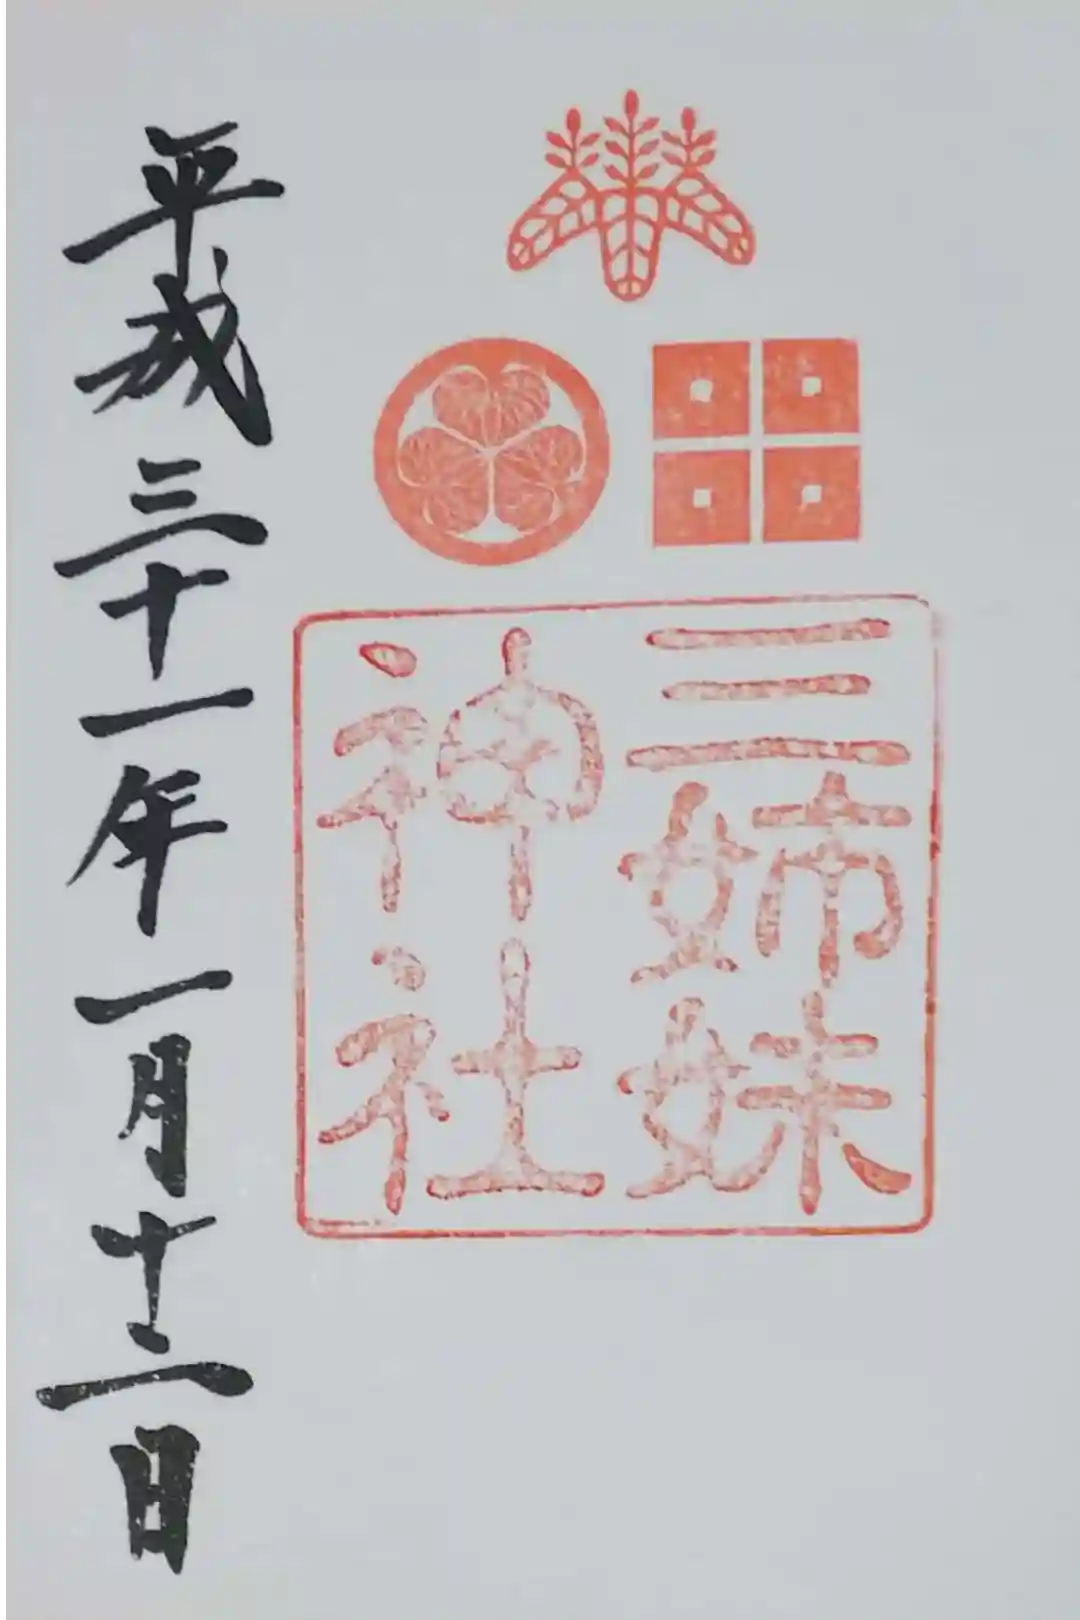 三姉妹
神社
平成三十一年一月十二日